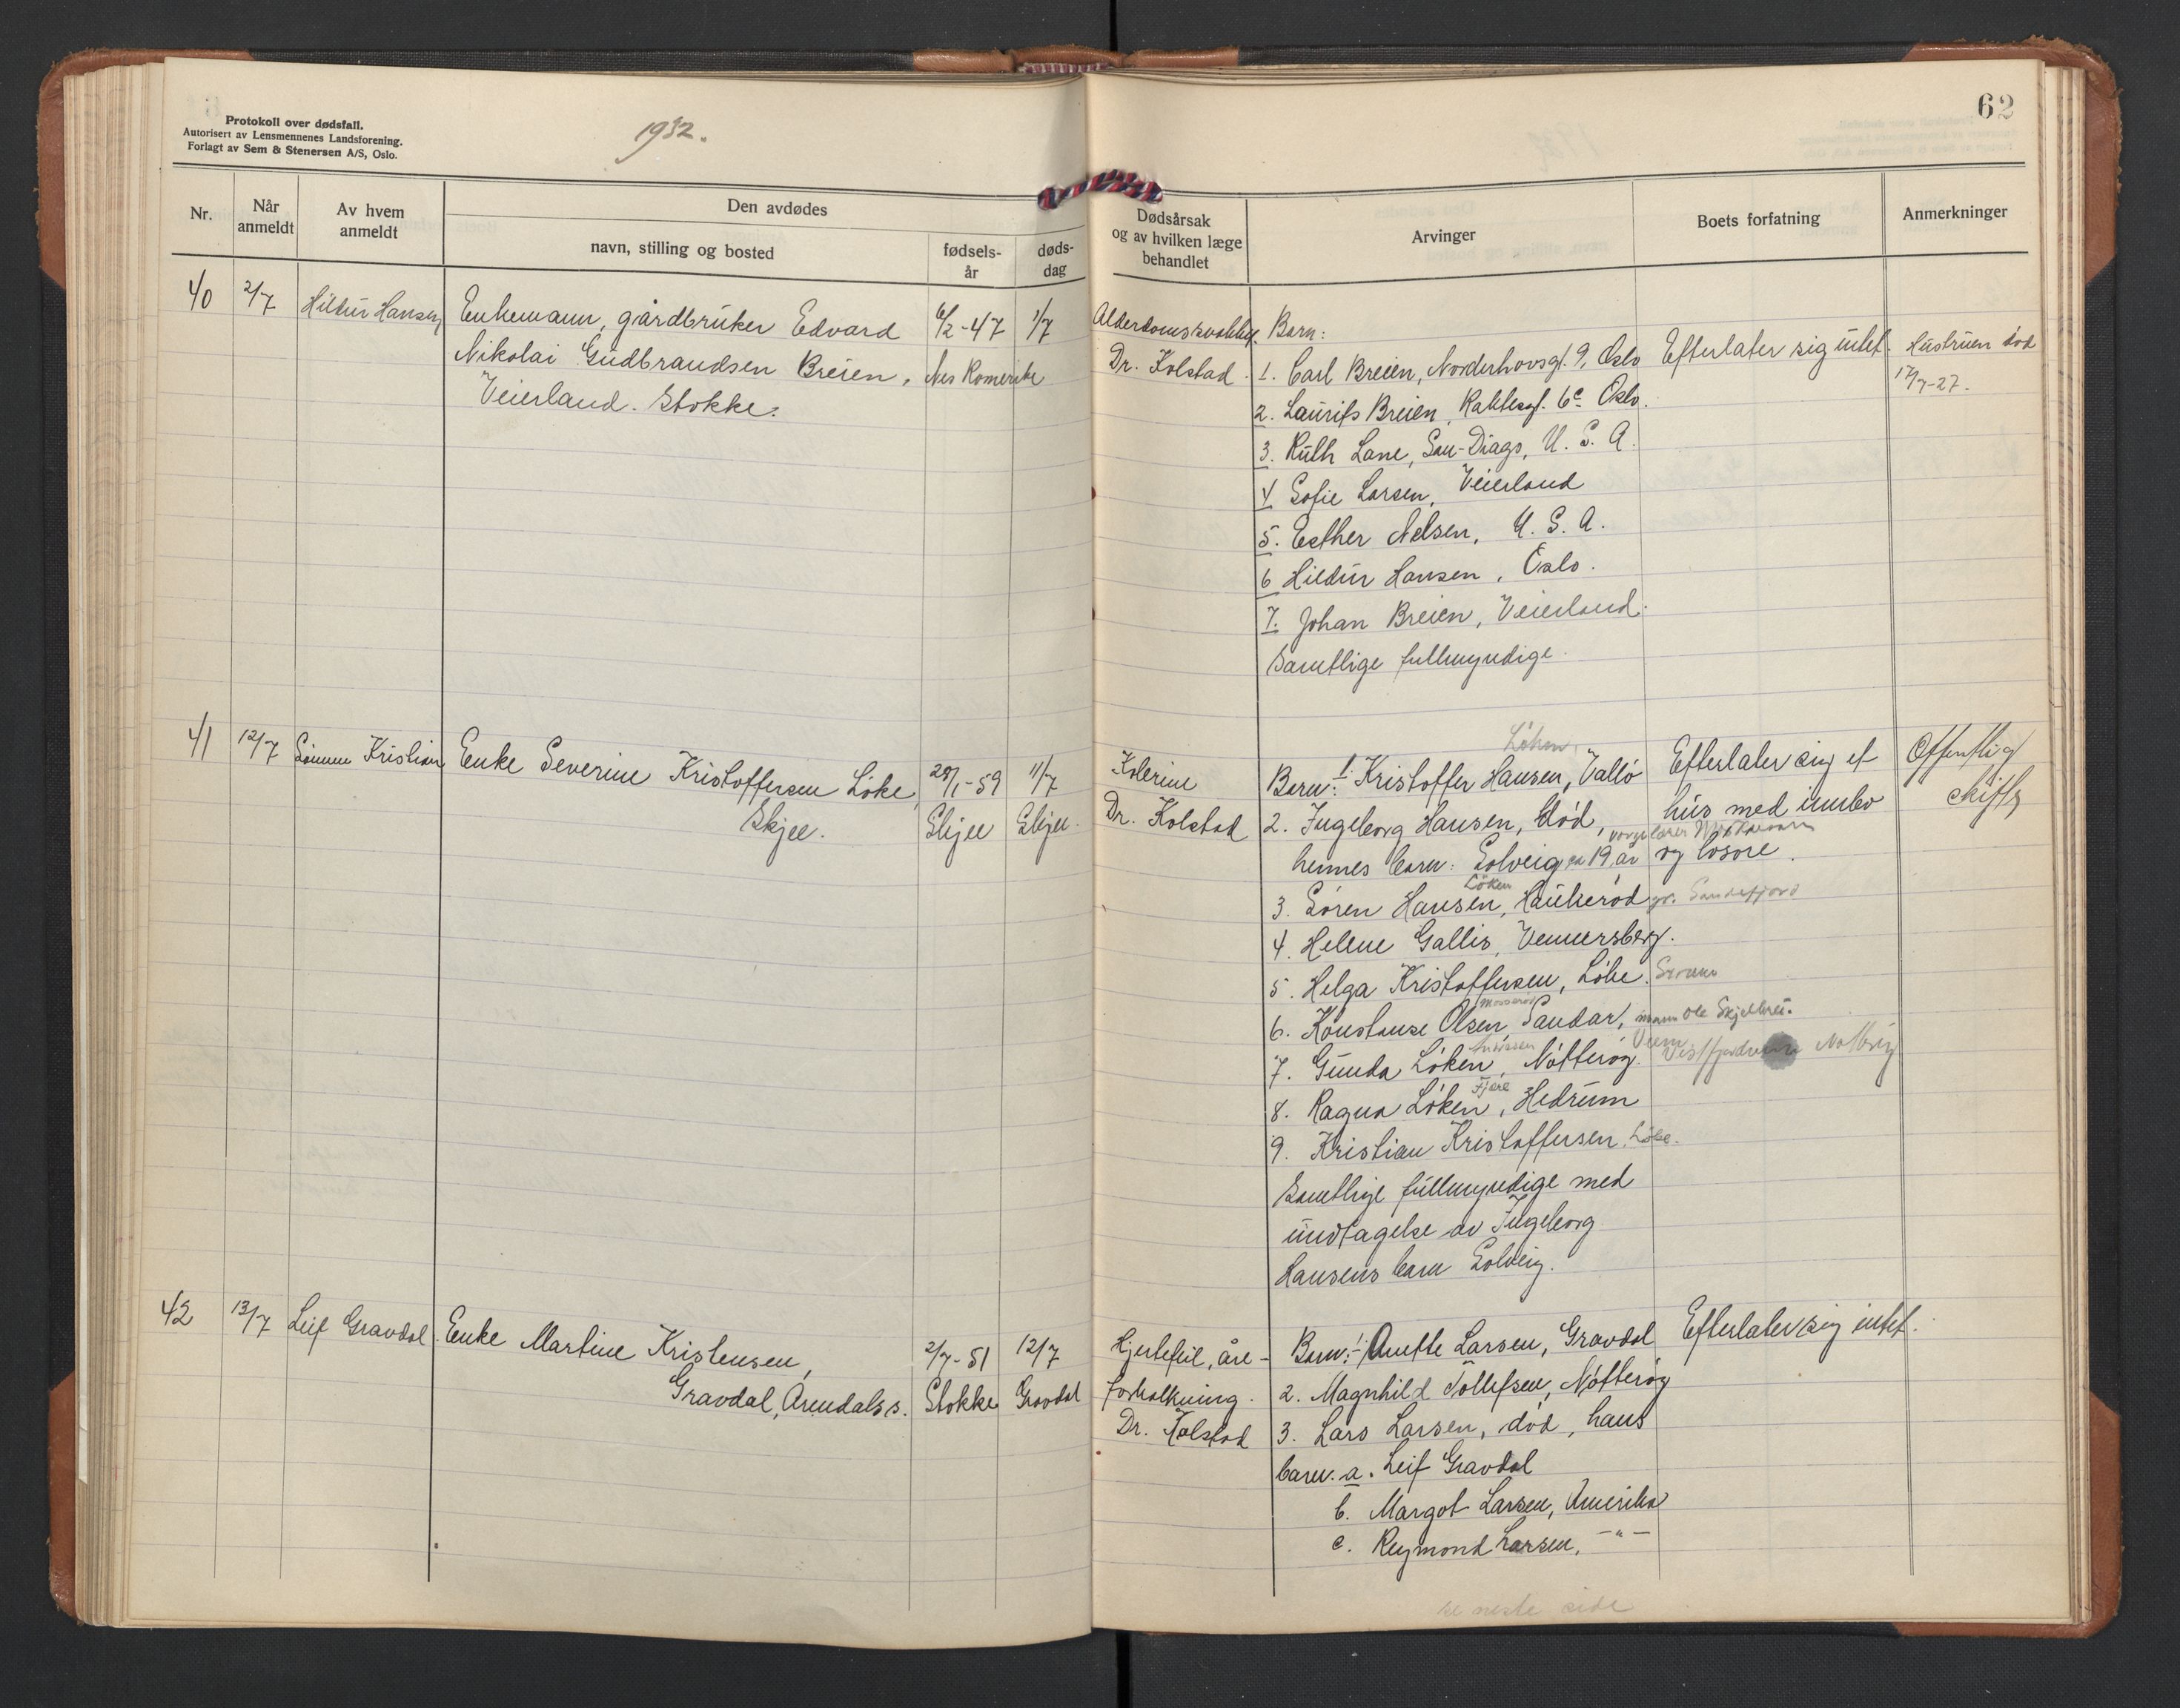 Protokoll over dødsfall.
Autorisert av Lensmennenes Landsforening.
Forlagt av Sem & Stenersen A/S, Oslo.
1932.
62
Nr.
Når anmeldt
Av hvem anmeldt
Den avdødes
navn, stilling og bosted
fødsels-år
døds-dag
Dødsårsak og av hvilken læge behandlet
Arvinger
Boets forfatning
Anmerkninger
40
2/7
Hildur Hansen
Enkemann, gårdbruker Edvard
Nikolai Gudbrandsen Breien,
Veierland. Stokke.
6/2-47
Nes Romerike
1/7
Alderdomssvakhet.
Dr. Kolstad.
Barn:
1. Carl Breien, Norderhovsgt. 9, Oslo
2. Laurits Breien, 6c Oslo.
3. Ruth Lane, San-Diago, U. S. A.
4. Sofie Larsen, Veierland
5. Esther Nelsen, U. S. A.
6 Hildur Hansen, Oslo.
7. Johan Breien, Veierland.
Samtlige fullmyndige.
Efterlater sig intet.
Hustruen død
17/7-27.
41
12/7
Sønnen Kristian
Enke Severine Kristoffersen Løke,
Skjee.
28/1-59
Skjee
11/7
Skjee.
Kolerine
Dr. Kolstad
Løken,
Barn: 1. Kristoffer Hansen, Vallø
2. Ingeborg Hansen, død,
hennes barn: Solveig 19 år
Løken
3. Søren Hansen, Haukerød pr. Sandefjord
4. Helene Gallis, Vemmersberg.
5. Helga Kristoffersen, Løke.
6. Konstanse Olsen, Sandar, mann Ole
7. Gunda Løken, Nøtterøy.
Fjære
8. Ragna Løken, Hedrum
9. Kristian Kristoffersen, Løke.
Samtlige fullmyndige med
undtagelse av Ingeborg
Hansens barn Solveig.
Efterlater sig et
hus med innbo
og løsøre.
Offentlig
skifte
42
13/7
Leif Gravdal.
Enke Martine Kristensen,
Gravdal, Arendals s.
2/7-51
Stokke
12/7
Gravdal
Hjertefeil, åre-
forkalkning.
Dr. Kolstad
Barn: 1. Anette Larsen, Gravdal
2. Magnhild Tollefsen, Nøtterøy
3. Lars Larsen, død, hans
barn. a. Leif Gravdal
b. Margot Larsen, Amerika
c. Reymond Larsen, -"-
Efterlater sig intet.
se neste side